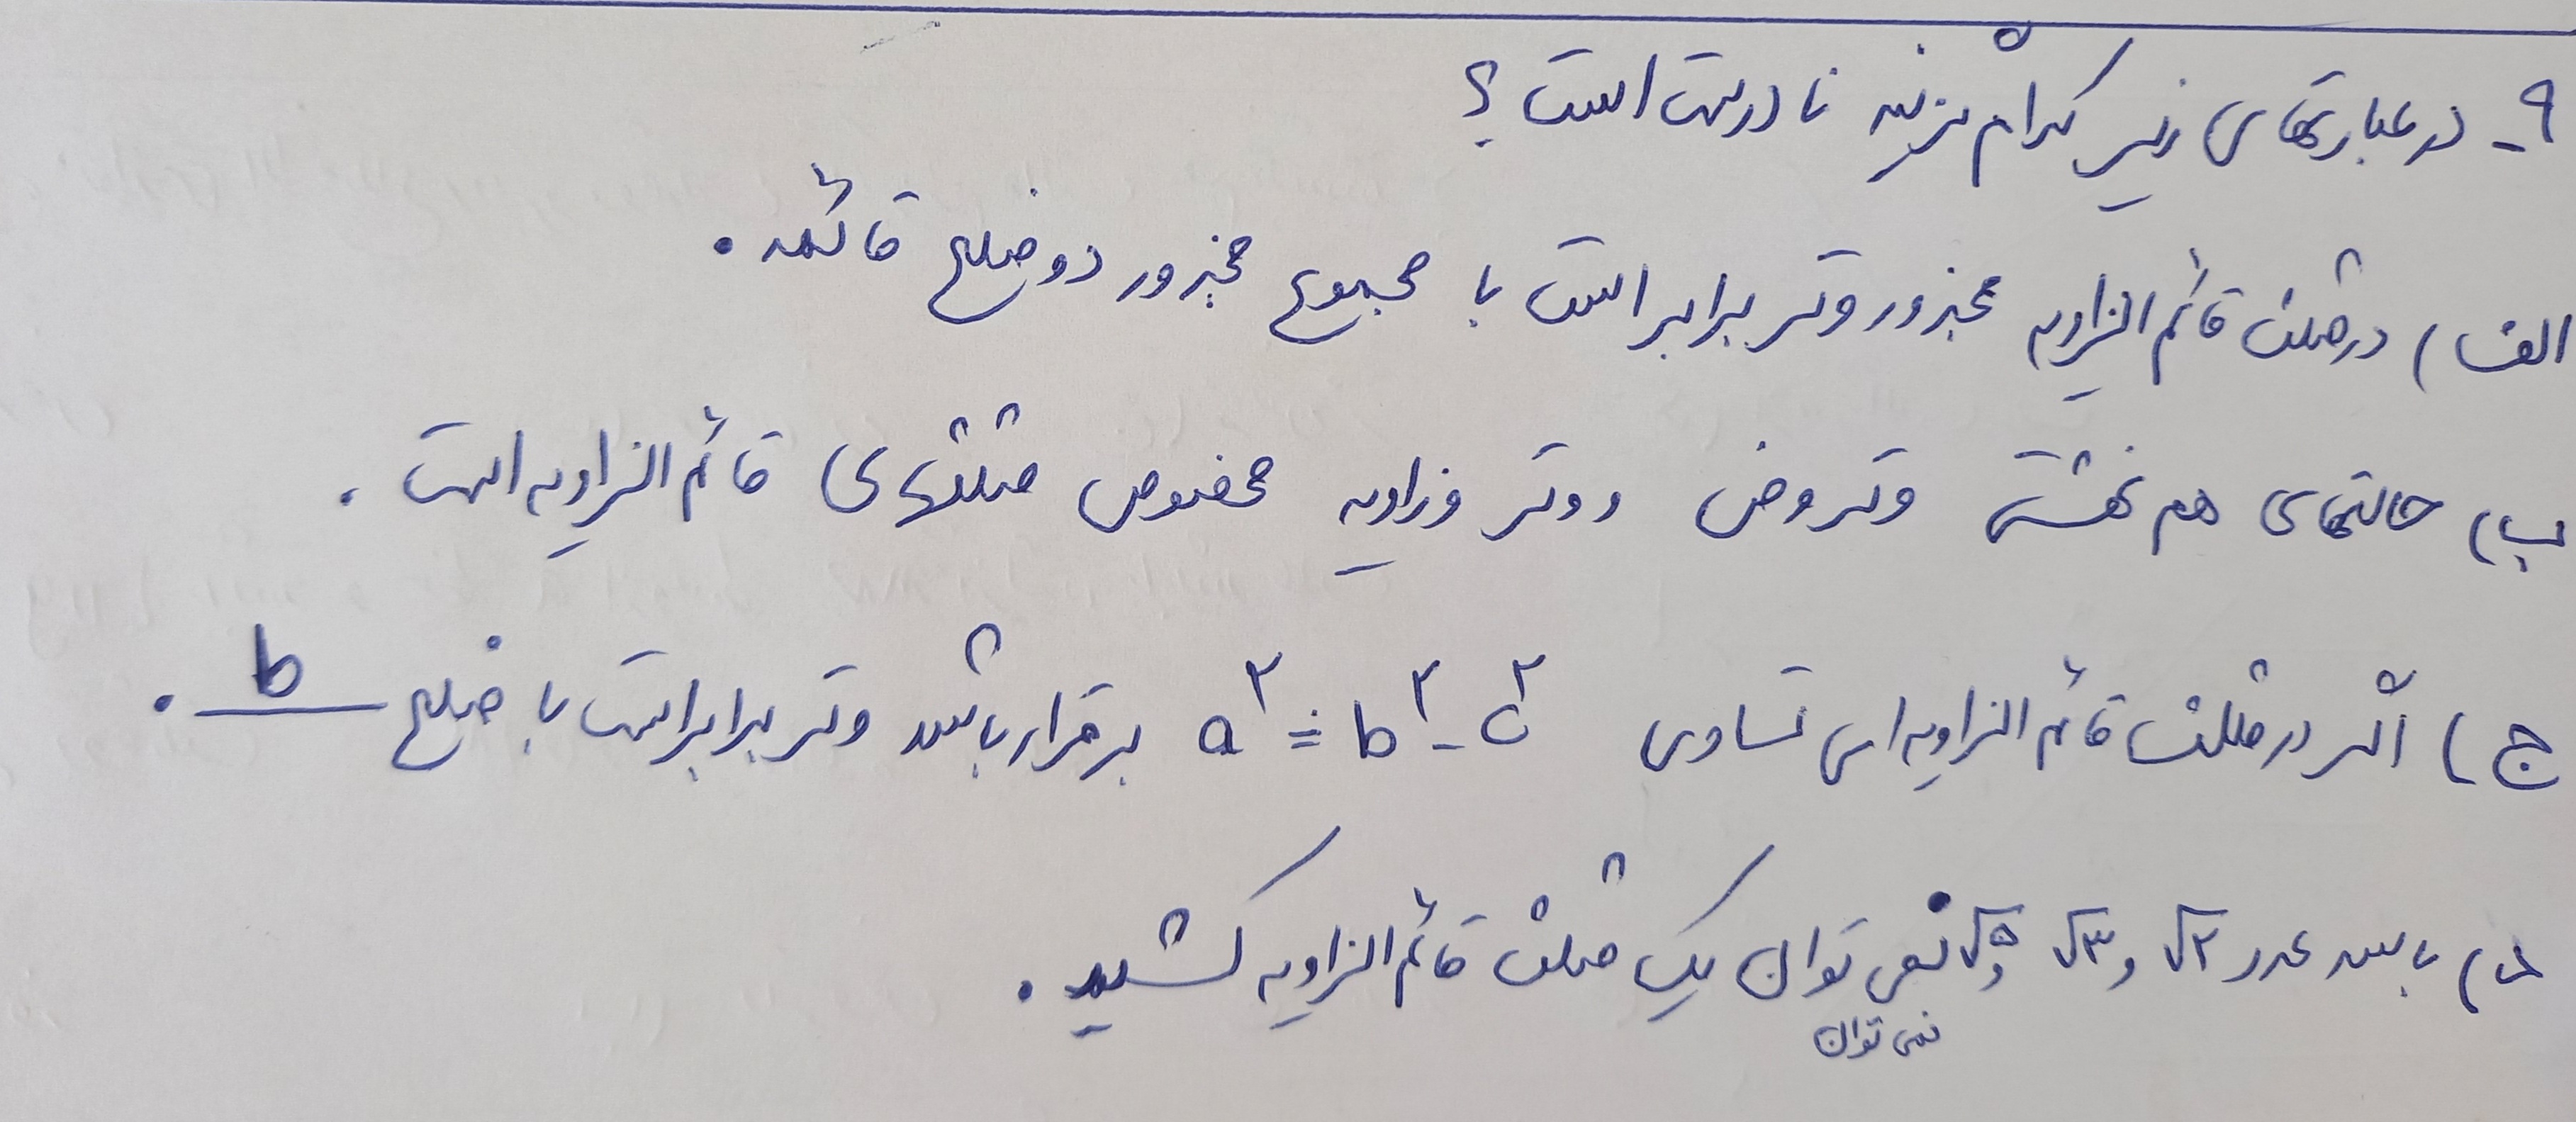 ۹- در عبارتهای زیر کدام گزینه نادرست است ؟
الف) در مثلث قائم الزاویه مجذور وتر برابر است با مجموع مجذور دو ضلع قائمه .
ب) حالتهای هم نهشتی وتر و ض و وتر و زاویه مخصوص مثلثهای قائم الزاویه است .
ج) اگر در مثلث قائم الزاویه ای تساوی a² = b² - c² برقرار باشد وتر برابر است با ضلع b .
د) با سه عدد √۲ و √۳ و √۵ نمی توان یک مثلث قائم الزاویه کشید .
نمی توان